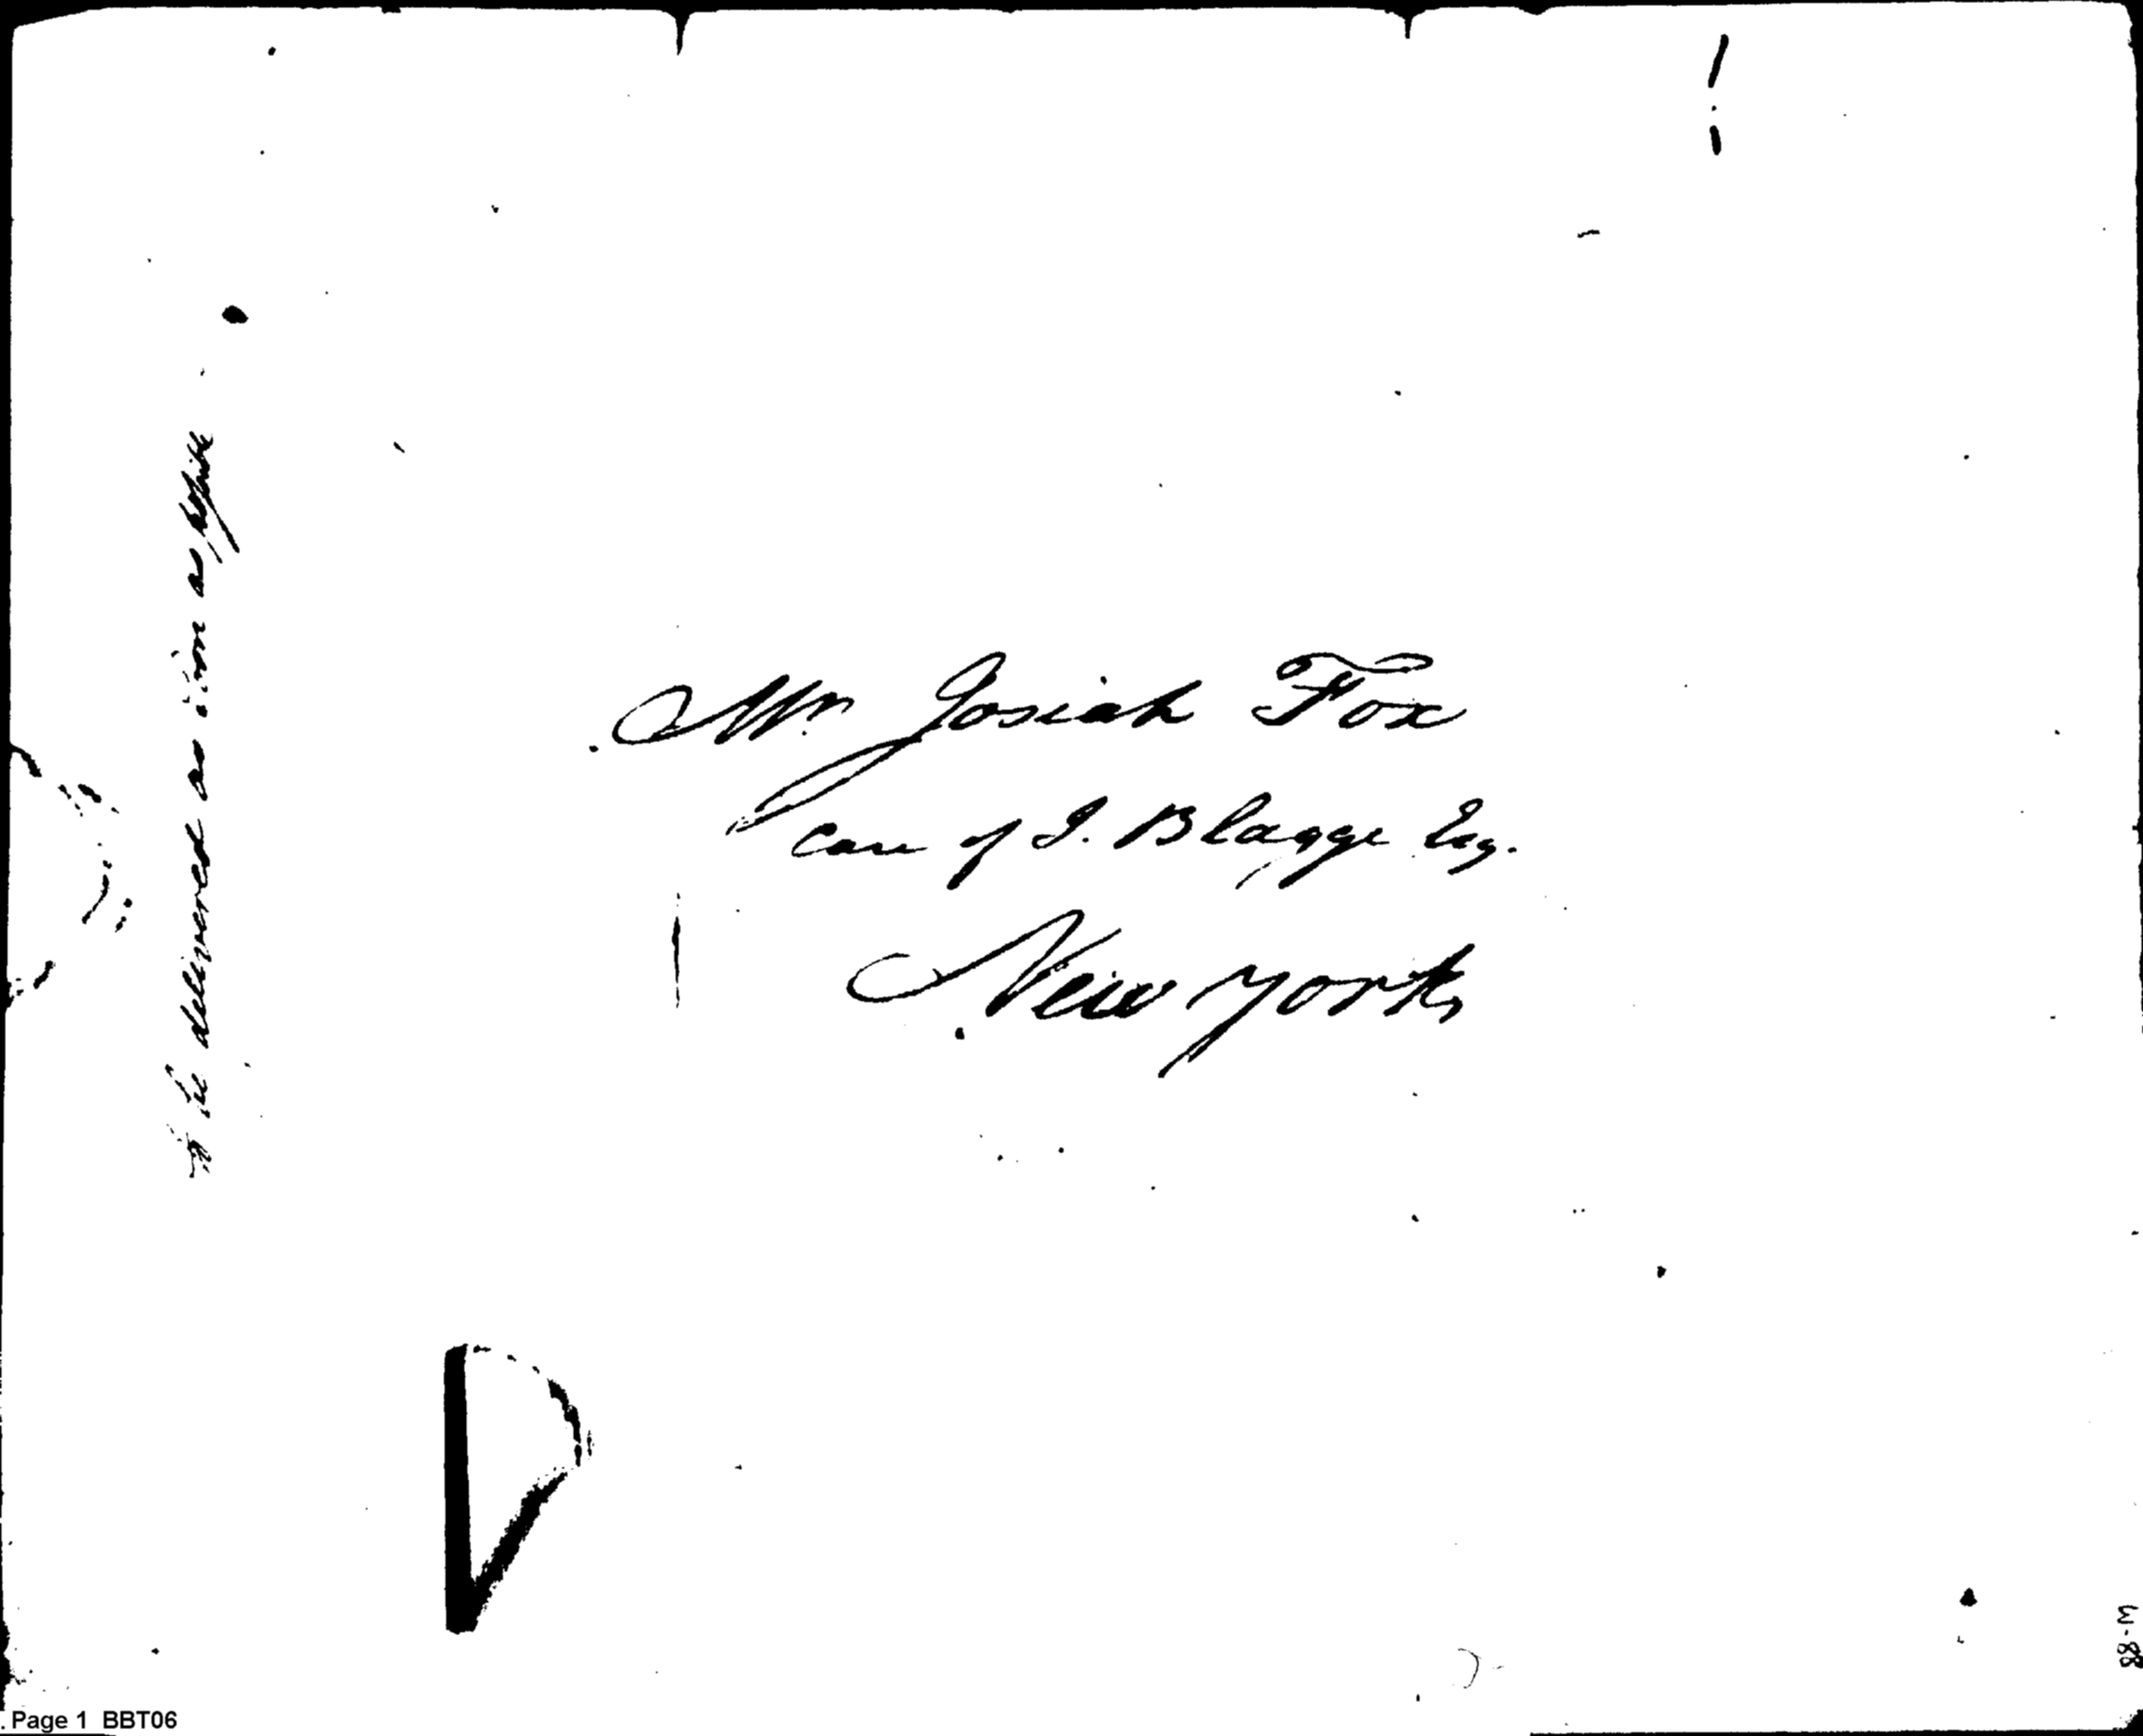 Mr. Josiah Fox
Care of J. Blagge Esq.
New York
to be delivered as soon as
W-88
. Page 1 BBT06